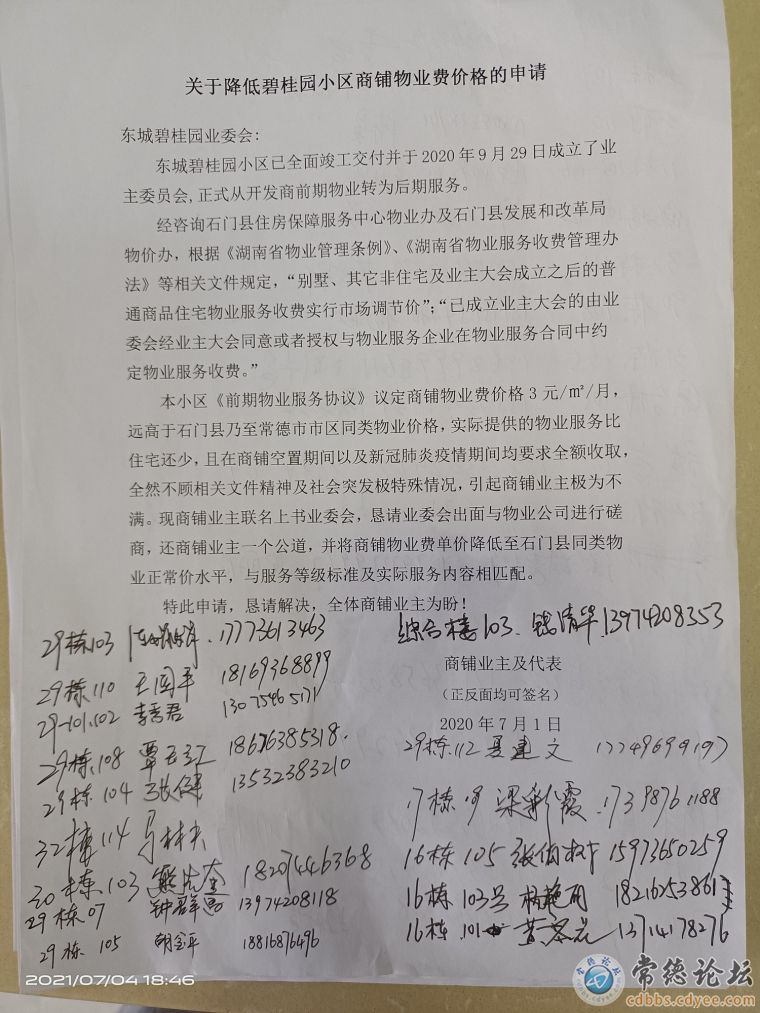 关于降低碧桂园小区商铺物业费价格的申请
东城碧桂园业委会:
东城碧桂园小区已全面竣工交付并于2020年9月29日成立了业
主委员会,正式从开发商前期物业转为后期服务。
经咨询石门县住房保障服务中心物业办及石门县发展和改革局
物价办,根据《湖南省物业管理条例》、《湖南省物业服务收费管理办
法》等相关文件规定,“别墅、其它非住宅及业主大会成立之后的普
通商品住宅物业服务收费实行市场调节价”;“已成立业主大会的由业
委会经业主大会同意或者授权与物业服务企业在物业服务合同中约
定物业服务收费。”
本小区《前期物业服务协议》议定商铺物业费价格3元/㎡/月,
远高于石门县乃至常德市市区同类物业价格,实际提供的物业服务比
住宅还少,且在商铺空置期间以及新冠肺炎疫情期间均要求全额收取,
全然不顾相关文件精神及社会突发极特殊情况,引起商铺业主极为不
满。现商铺业主联名上书业委会,恳请业委会出面与物业公司进行磋
商,还商铺业主一个公道,并将商铺物业费单价降低至石门县同类物
业正常价水平,与服务等级标准及实际服务内容相匹配。
特此申请,恳请解决,全体商铺业主为盼!
综合楼103、钱清华.13974208353
商铺业主及代表
(正反面均可签名)
2020年7月1日
29栋103 17773613463
29栋110 王国平 18169368899
29-101.102 李春君 13075465171
29栋108 覃 18676385318.
29栋104 张健 13532383210
32栋114
30栋103 熊 18207446368
29栋07 钟群 13974208118
29栋105 胡金平 18816876496
29栋112 夏建文 17749699197
17栋 梁彩霞 .17398761188
16栋105 张伯 15973650259
16栋103号 杨艳丽 18216253861
16栋.101 13714178276
2021/07/04 18:46
常德论坛
cdbbs.cdyee.com